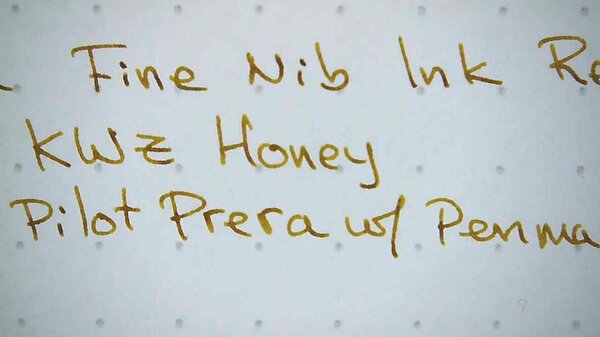 Fine Nib Ink Re
KWZ Honey
Pilot Prera w/ Penma